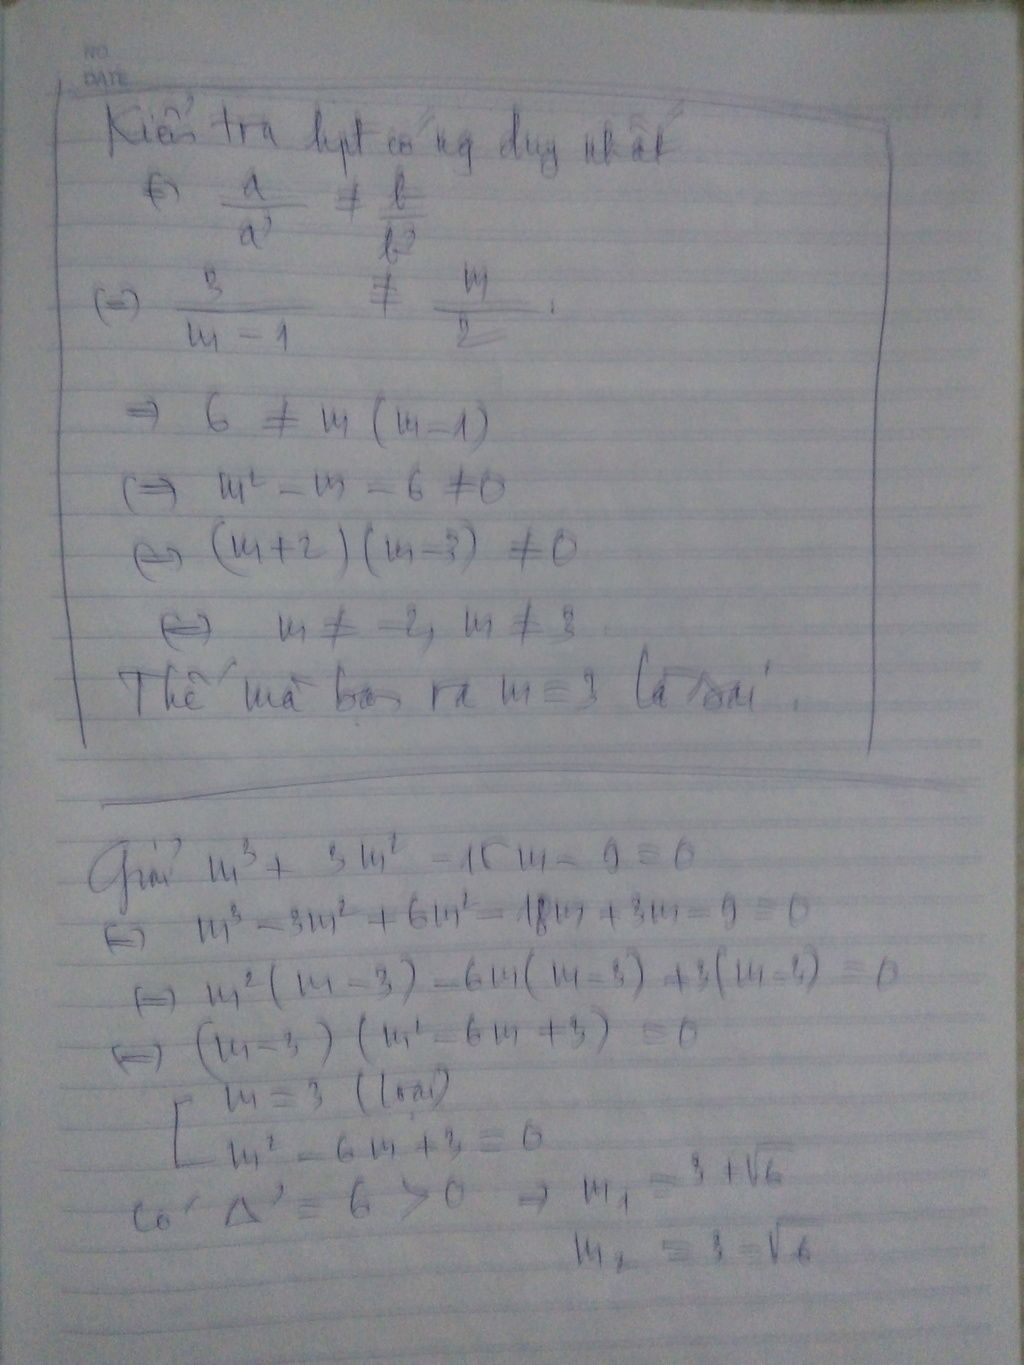 NO
DATE
Kiểm tra hpt có ng duy nhất
(=) a/a' ≠ b/b'
(=) 3/(m - 1) ≠ m/2.
=> 6 ≠ m (m-1)
(=) m² - m - 6 ≠ 0
(=) (m+2)(m-3) ≠ 0
(=) m ≠ -2, m ≠ 3
Thế mà bạn ra m = 3 là sai.
Giải m³ + 3m² - 15m - 9 = 0
(=) m³ - 3m² + 6m² - 18m + 3m - 9 = 0
(=) m²(m-3) - 6m(m-3) + 3(m-3) = 0
(=) (m-3)(m² - 6m + 3) = 0
[ m = 3 (loại)
m² - 6m + 3 = 0
Có Δ' = 6 > 0 => m₁ = 3 + √6
m₂ = 3 - √6